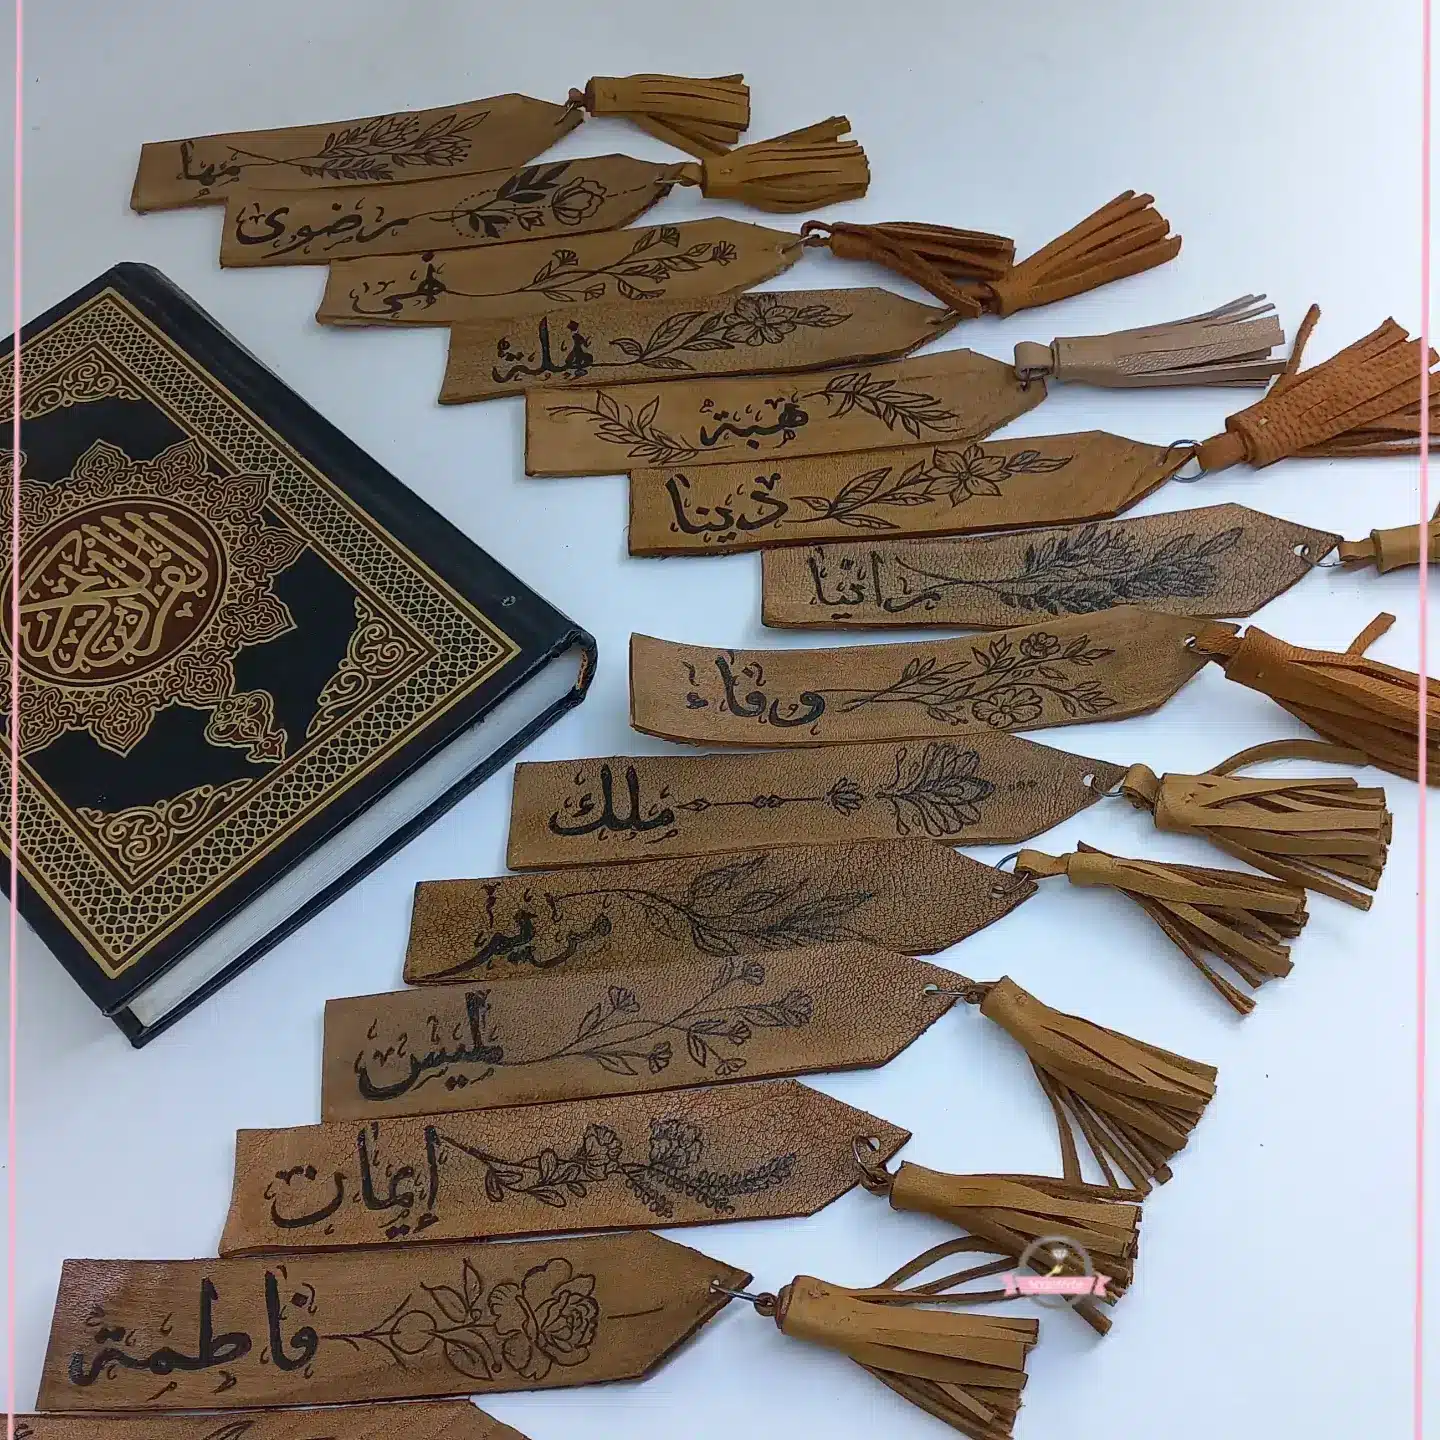 مها
رضوى
هبة
دينا
رانيا
وفاء
ملك
مريم
لميس
إيمان
فاطمة
القرآن الكريم